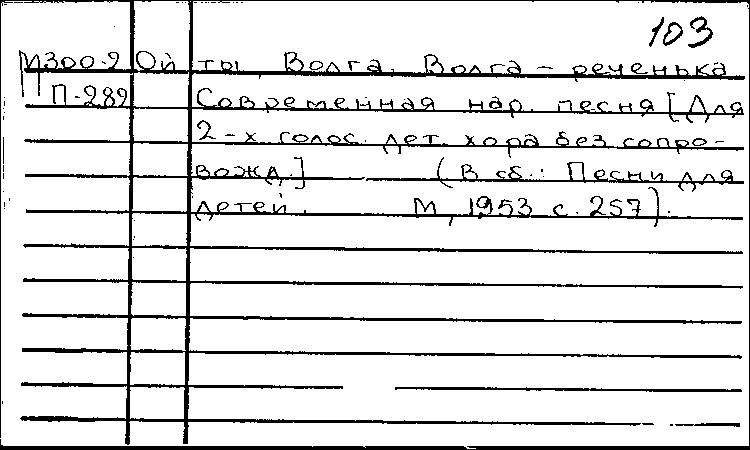 103
М300-2 Ой ты, Волга, Волга - реченька
П-289 Современная нар. песня [Для
2-х голос. дет. хора без сопро-
вожд.] (В сб.: Песни для
детей. М, 1953 с. 257).